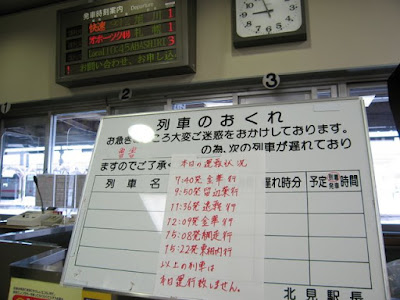 発車時刻案内 Departure
快速 旭川 1
オホーツク4 札幌 1
Local 11:45 ABASHIRI 3
お問い合わせ、お申し込
1
2
3
列車のおくれ
お急ぎのところ大変ご迷惑をおかけしております。
雪害 の為、次の列車が遅れており
ますのでご了承
列車名
遅れ時分
予定 到着 発車 時間
本日の運転状況
7:40発金華行
9:50発留辺蘂行
11:36発遠軽行
12:09発金華行
15:08発網走行
15:22発東相内行
以上の列車は
本日運行致しません。
北見駅長